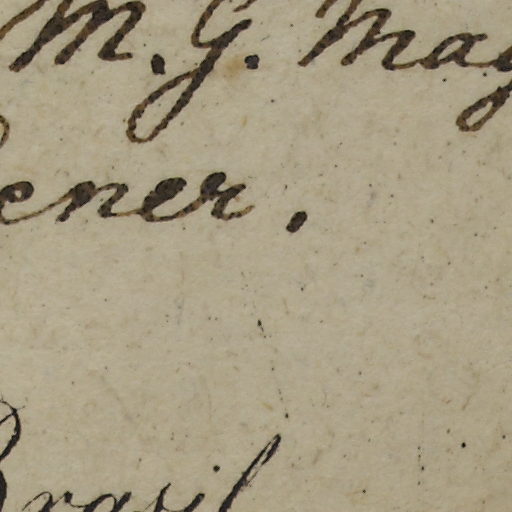 M. G. Mag
ener.
Brasil